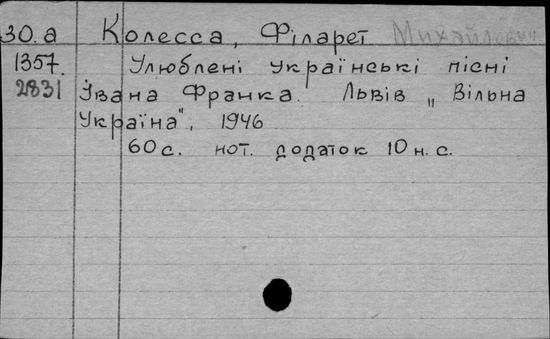 30.а Колесса, Філарет Михайлович
1357. Улюблені українські пісні
2831 Івана Франка. Львів „Вільна
Україна", 1946
60 с. нот. додаток 10 н. с.